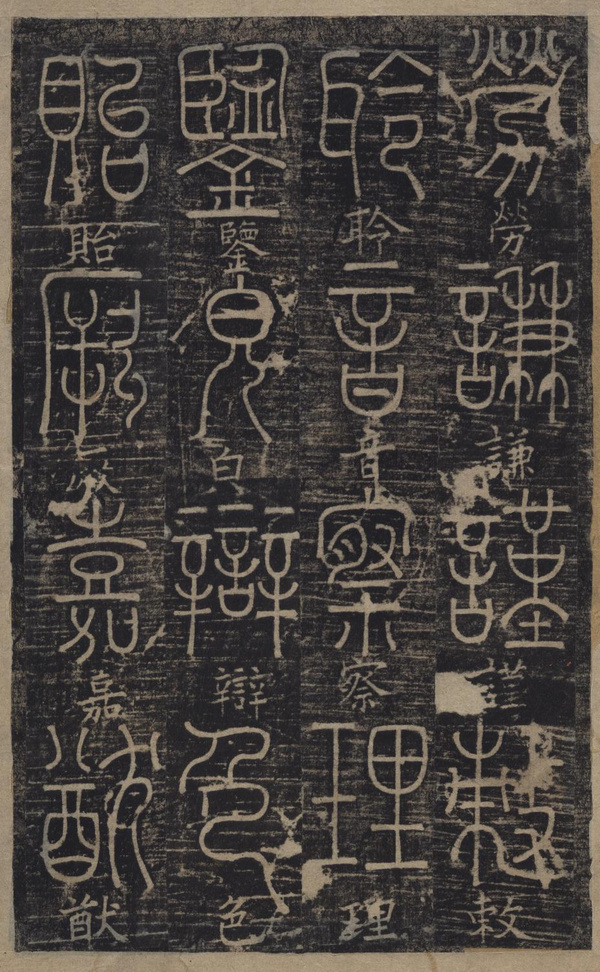 勞勞謙謙謹謹敕敕
聆聆音音察察理理
鑒鑒皃辯辯色色
貽貽厥嘉嘉猷猷